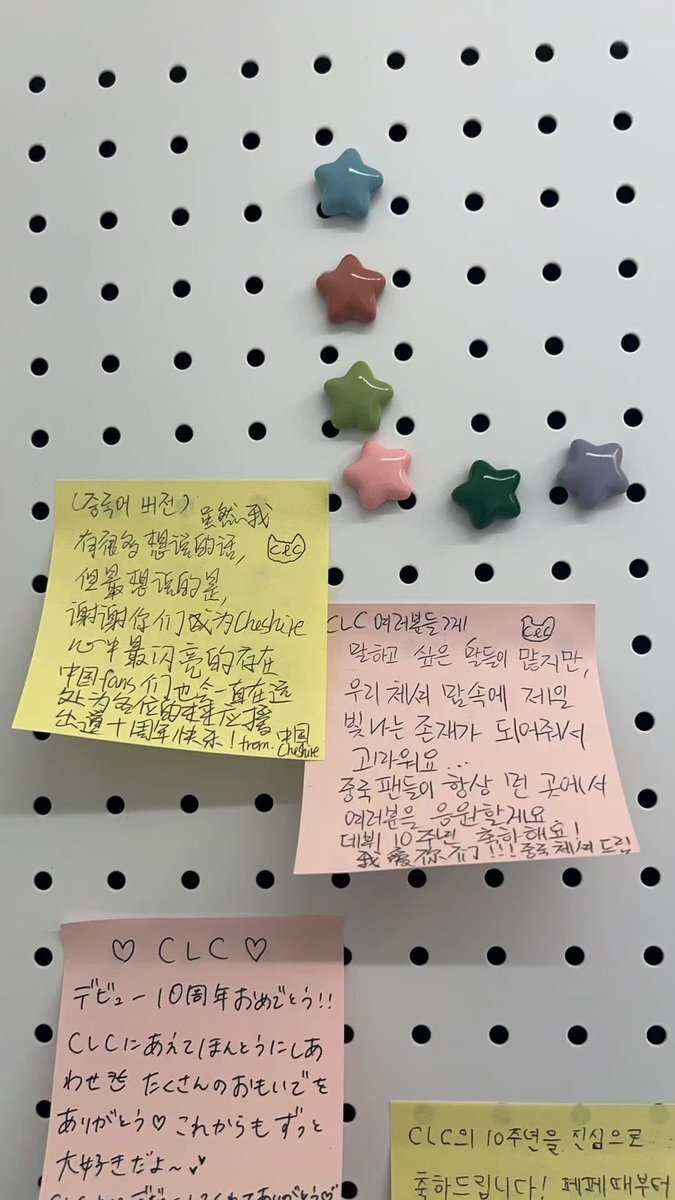 (중국어 버전) 虽然我
有很多想说的话,
CLC
但最想说的是,
谢谢你们成为Cheshire
心中最闪亮的存在
中国fans们也会一直在远
处为各位的
出道十周年快乐! from. 中国
Cheshire
CLC 여러분들게
CLC
말하고 싶은 말들이 많지만,
우리 체셔 맘속에 제일
빛나는 존재가 되어줘서
고마워요...
중국 팬들이 항상 먼 곳에서
여러분을 응원할게요
데뷔 10주년 축하해요!
我爱你们!!! 중국 체셔 드림
♡ CLC ♡
デビュー10周年おめでとう!!
CLCにあえてほんとうにしあ
わせ たくさんのおもいでを
ありがとう♡ これからもずっと
大好きだよ〜
CLC의 10주년을 진심으로
축하드립니다! 페페때부터